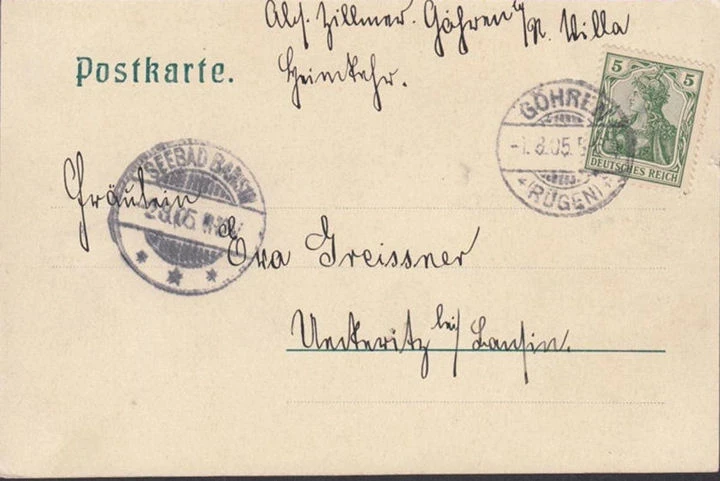 Abs. Zillmer. Göhren a/R. Villa
Heimkehr.
Postkarte.
5 5
DEUTSCHES REICH
GÖHREN
-1.8.05.
(RÜGEN)
SEEBAD BANSIN
2.8.05.
Fräulein
Eva Greissner
Ueckeritz bei/ Bansin.